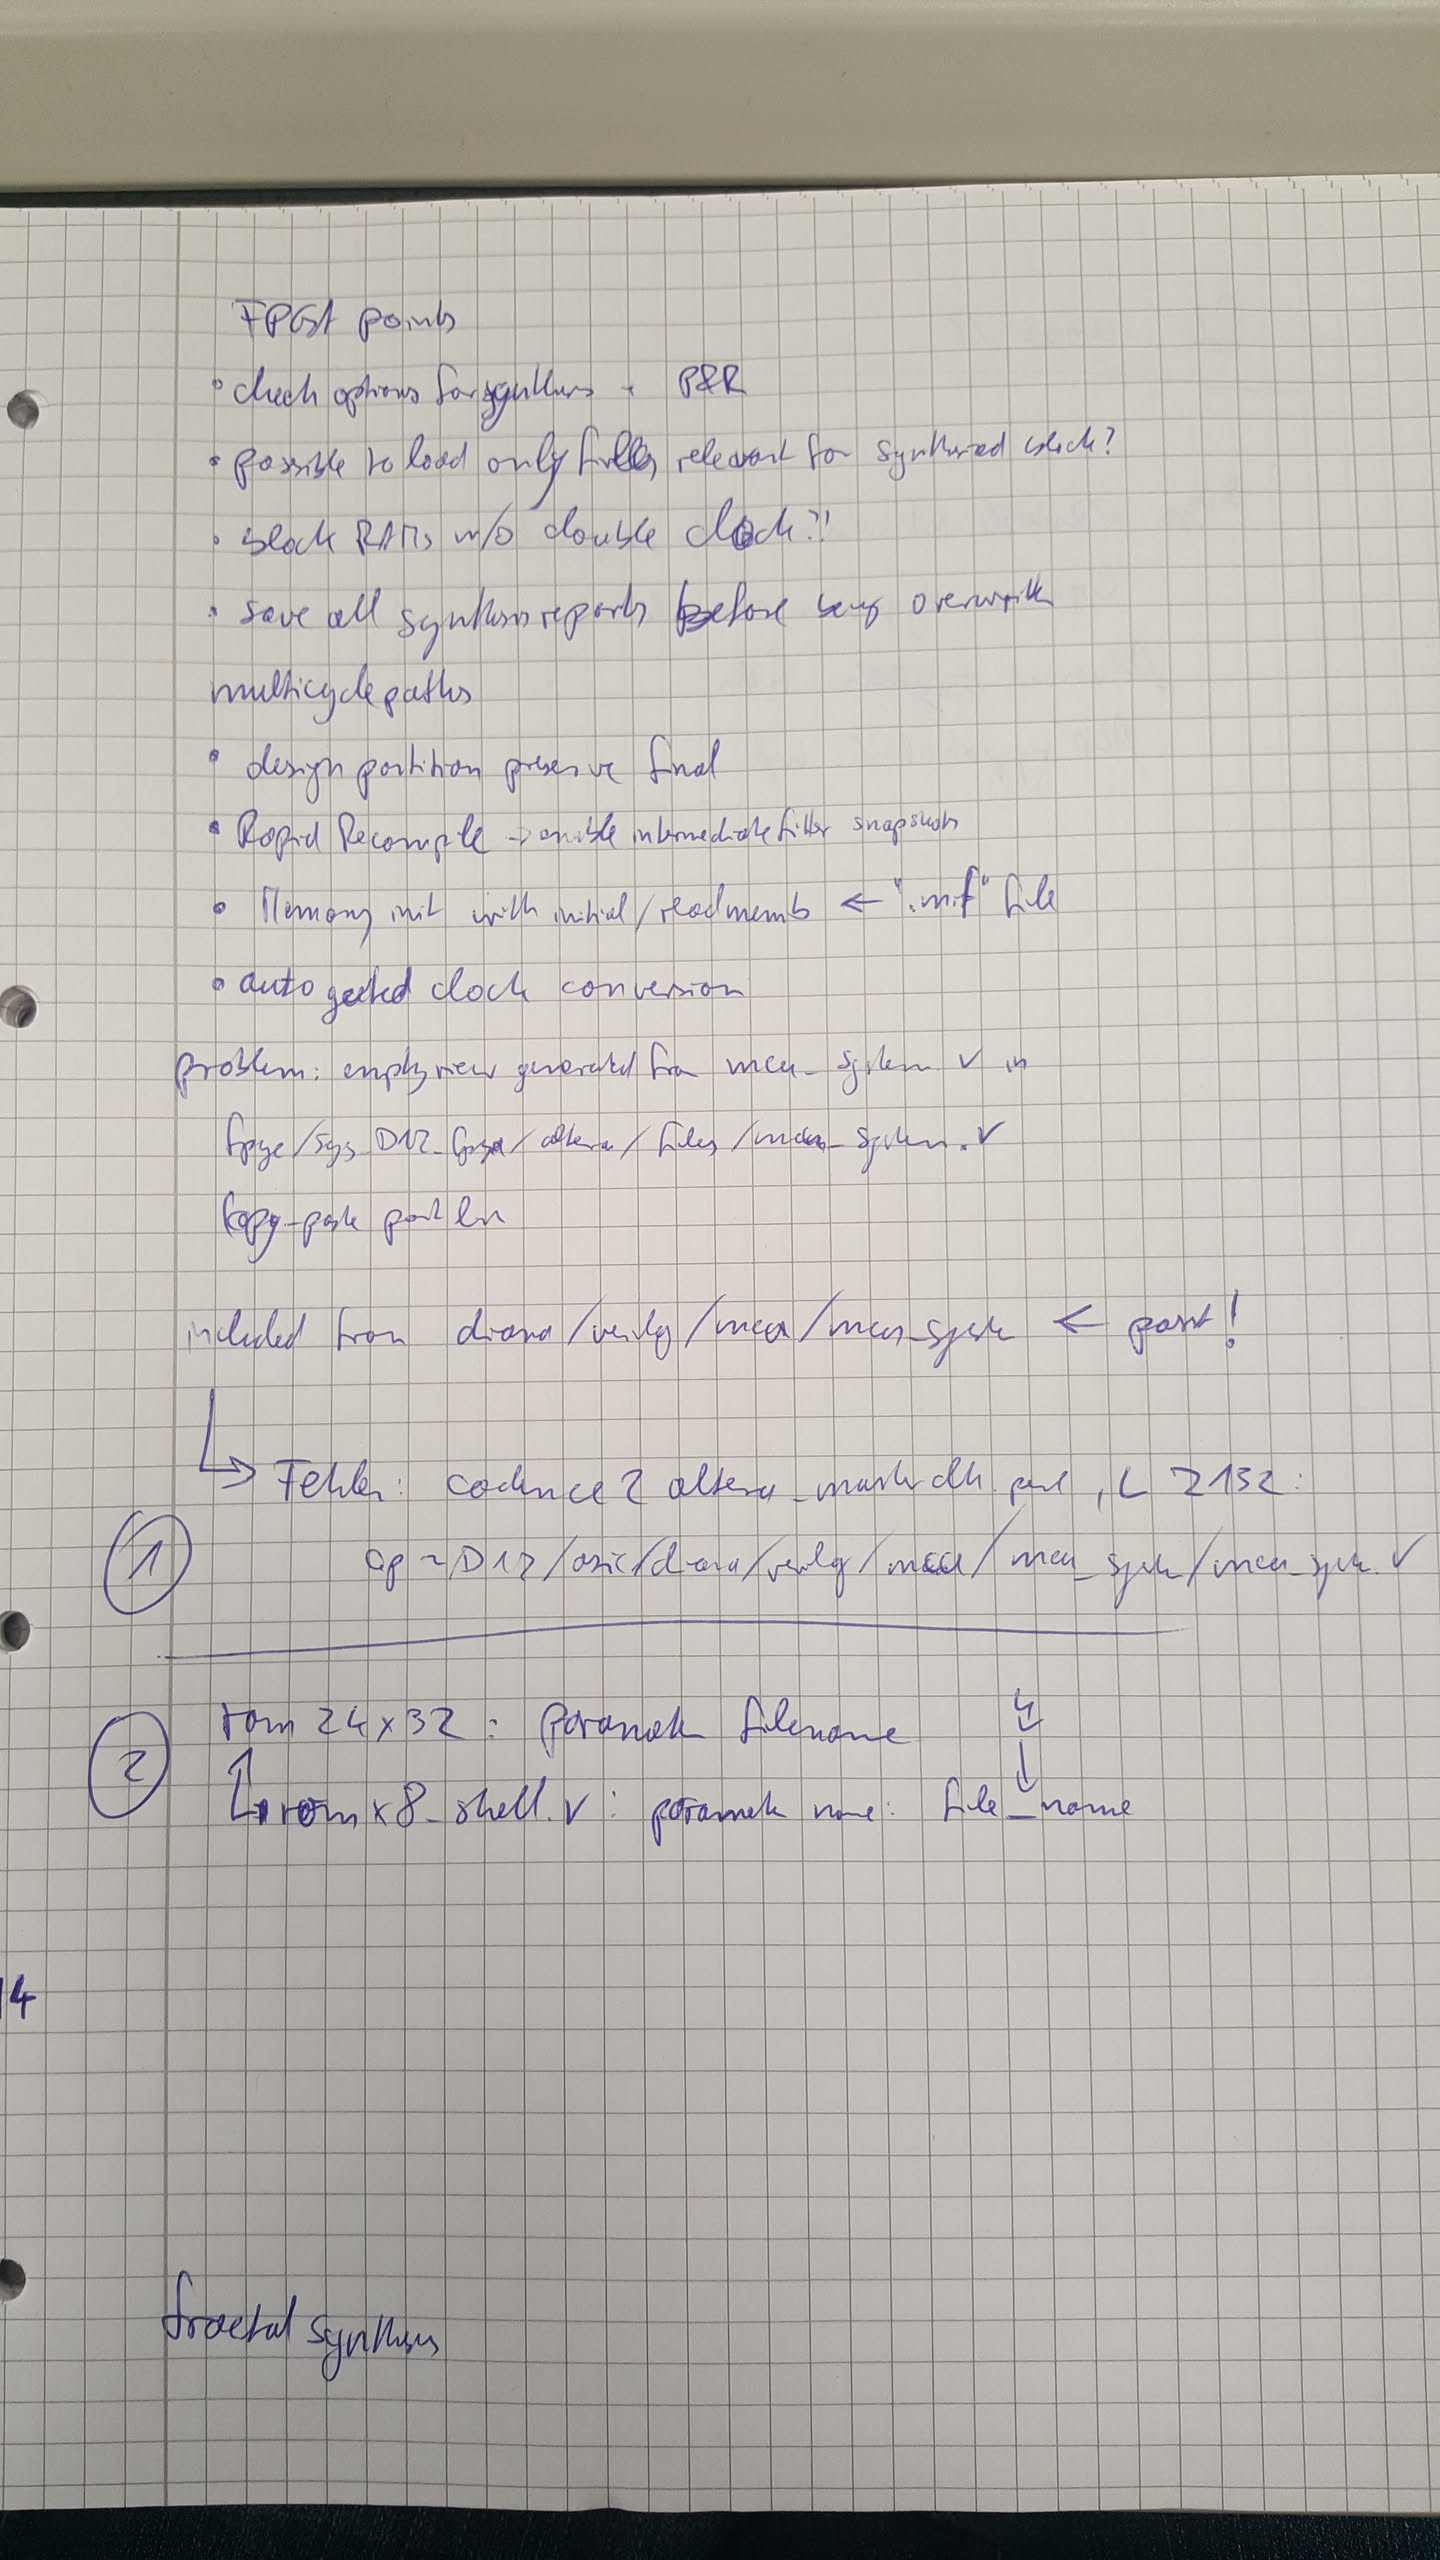 FPGA points
• check options for synthesis + P&R
• possible to load only files relevant for synthesized block?
• block RAMs w/o double clock?!
• save all synthesis reports before being overwritten
multicycle paths
• design partition preserve final
• Rapid Recompile → enable intermediate fitter snapshots
• Memory init with initial/readmemb ← ".mif" file
• auto gated clock conversion
problem: empty view generated from mcu_system.v in
altera/files/mcu_system.v
copy-paste
included from diana/verilog/mcu/mcu_system ←
↳ Fehler: cadence2altera_ .perl, L 2132:
① cp ~D17/asic/diana/verilog/mcu/mcu_system/mcu_system.v
② rom 24x32: parameter filename
romx8_shell.v: parameter name: file_name
14
fractal synthesis